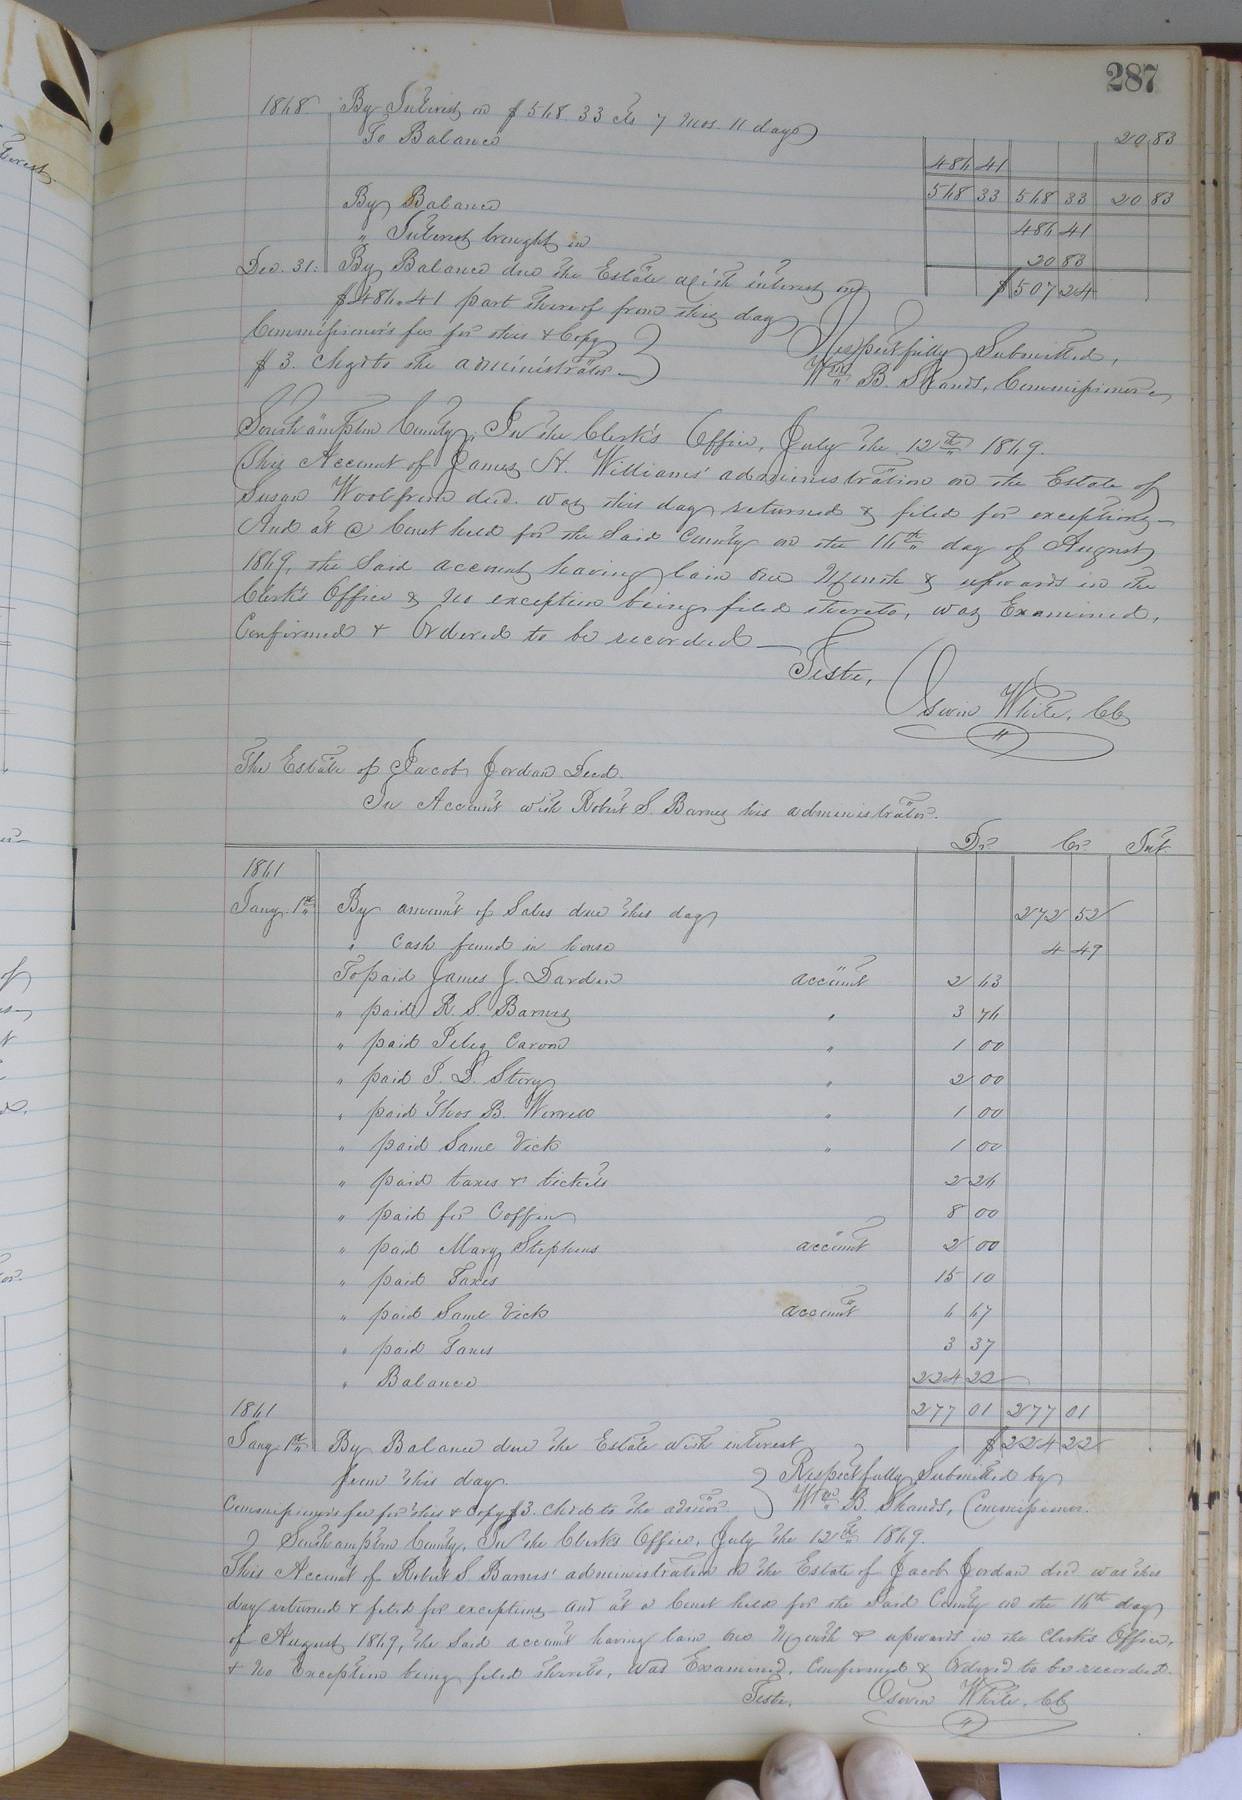 287
1868 By Interest on $568 33 cts 7 Mos. 11 days 20 83
To Balance 486 41
568 33 568 33 20 83
By Balance 486 41
" Interest brought in 20 83
Dec. 31. By Balance due the Estate with interest on $507 24
$486.41 part thereof from this day
Commissioner's fee for this & Copy
$3. Chgd to the administrator
Respectfully Submitted,
Wm B. Shands, Commissioner
Southampton County, In the Clerk's Office, July the 12th 1869.
This Account of James H. Williams' administration on the Estate of
Susan decd. was this day returned & filed for exceptions
And at a Court held for the Said County on the 16th day of August
1869, the said account having lain one Month & upwards in the
Clerk's Office & No exception being filed thereto, was Examined,
Confirmed & Ordered to be recorded
Teste,
Oswin White, CC
The Estate of Jacob Jordan Decd.
In Account with Robert S. Barnes his administrator.
Dr. Cr. Int.
1861
Jany. 1st By amount of Sales due this day 272 52
" Cash found in house 4 49
To paid James J. Darden account 2 63
" paid R. S. Barnes " 3 76
" paid " 1 00
" paid Story " 2 00
" paid Thos B. Worrell " 1 00
" paid Saml Vick " 1 00
" paid taxes & tickets 2 26
" paid for Coffin 8 00
" paid Mary Stephens account 2 00
" paid Taxes 15 10
" paid Saml Vick account 6 67
" paid Taxes 3 37
" Balance 224 22
1861 277 01 277 01
Jany 1st By Balance due the Estate with interest $224 22
from this day.
Respectfully Submitted by
Commissioner's fee for this & Copy $3. Chd to the admor. Wm B. Shands, Commissioner.
Southampton County, In the Clerk's Office, July the 12th 1869.
This Account of Robert S Barnes' administration on the Estate of Jacob Jordan decd was this
day returned & filed for exceptions and at a Court held for the Said County on the 16th day
of August 1869, the said account having lain one Month & upwards in the Clerk's Office,
& No Exception being filed thereto, was Examined, Confirmed & Ordered to be recorded.
Teste, Oswin White, CC